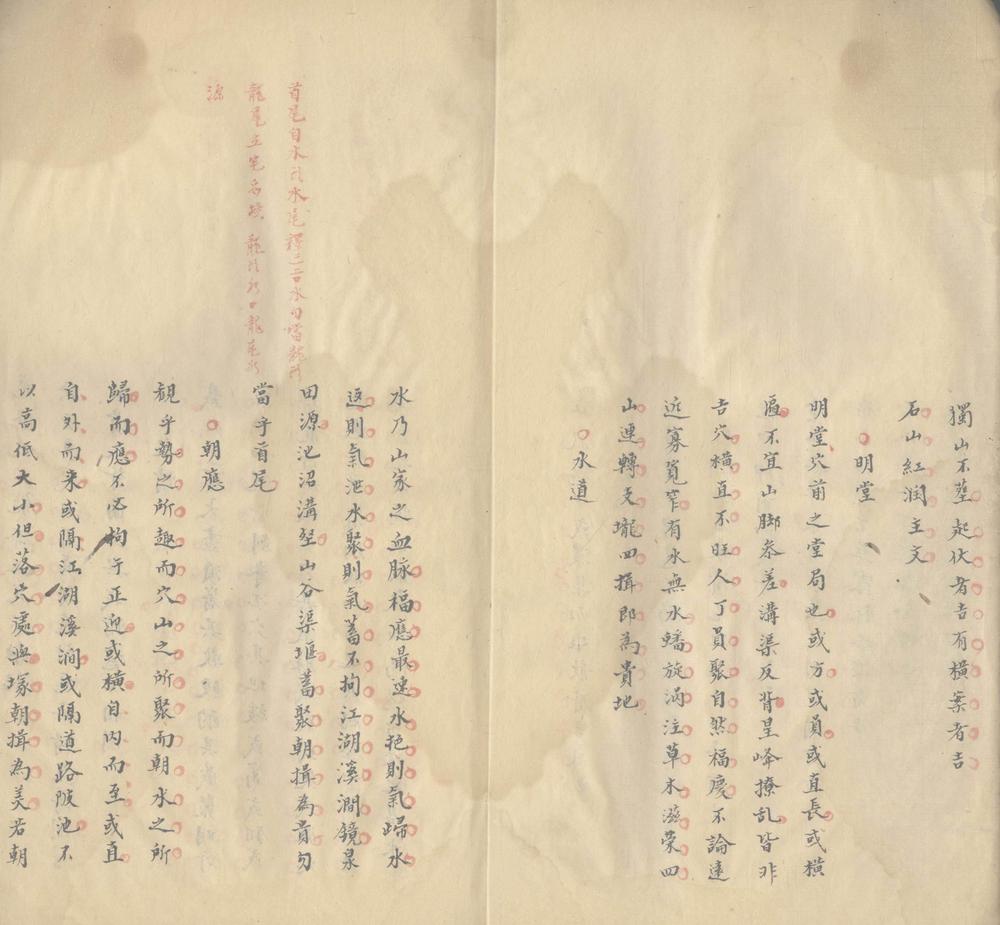 獨山不塟起伏者吉有橫案者吉
石山紅润主文
明堂
明堂穴前之堂局也或方或員或直長或橫
匾不宜山脚叅差溝渠反背星峰撩乱皆非
吉穴橫直不旺人丁員聚自然福慶不論遠
近寡寬窄有水無水蟠旋涡注草木滋荣四
山連轉支壠四揖即為貴地
水道
水乃山家之血脉福應最速水抱則氣歸水
返則氣泄水聚則氣蓄不拘江湖溪澗鏡泉
田源池沼溝壑山谷渠堰蓄聚朝揖為貴勿
當乎首尾
朝應
観乎勢之所趣而穴山之所聚而朝水之所
歸而應不必拘于正迎或橫自内而至或直
自外而来或隔江湖溪澗或隔道路陂池不
以高低大小但落穴處與塚朝揖為美若朝
首尾自水水尾釋二曰水勿當龍
龍尾立宅安墳龍口龍尾
源